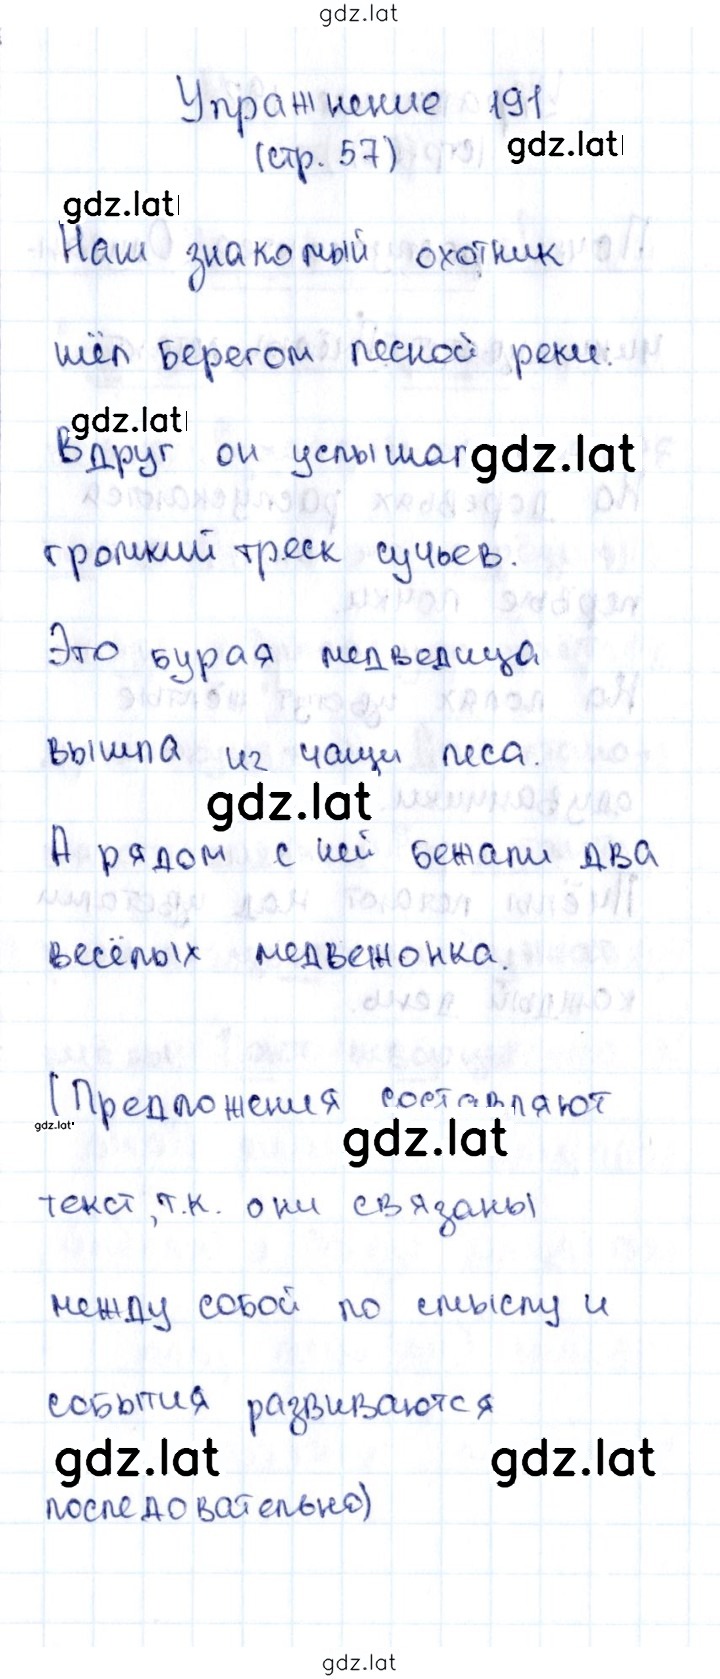 gdz.lat
Упражнение 191
(стр. 57)
gdz.lat
gdz.lat
Наш знакомый охотник
шёл берегом лесной реки.
gdz.lat
Вдруг он услышал
gdz.lat
громкий треск сучьев.
Это бурая медведица
вышла из чащи леса.
gdz.lat
А рядом с ней бежали два
весёлых медвежонка.
(Предложения составляют
gdz.lat
gdz.lat
текст, т.к. они связаны
между собой по смыслу и
события развиваются
gdz.lat
gdz.lat
последовательно)
gdz.lat